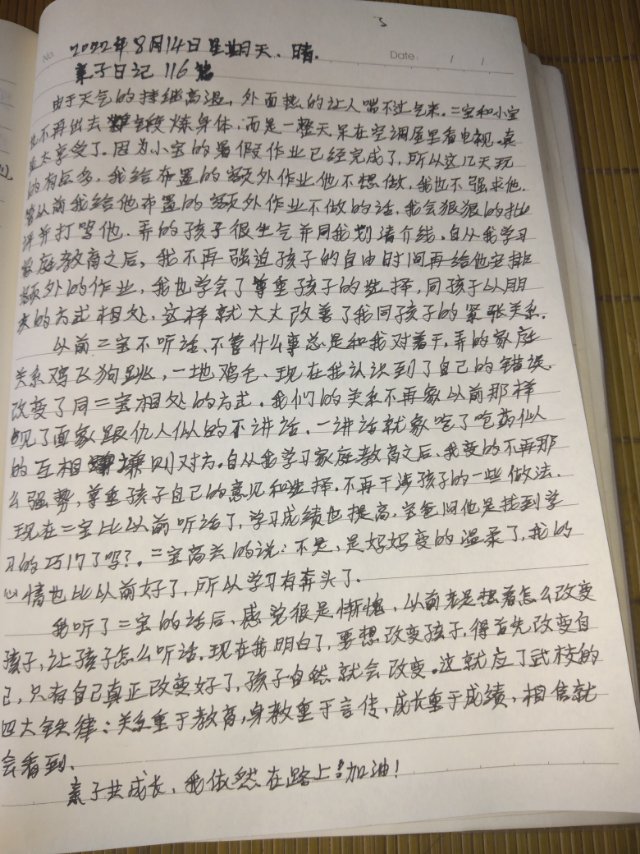 2022年8月14日星期天、晴.
No.
Date: / /
亲子日记 116篇
由于天气的持继高温,外面热的让人喘不过气来.二宝和小宝
也不再出去锻炼身体,而是一整天呆在空调屋里看电视.真
是太享受了.因为小宝的暑假作业已经完成了,所以这几天玩
的有点多,我给布置的额外作业他不想做,我也不强求他.
要以前我给他布置的额外作业不做的话,我会狠狠的批
评并打骂他.弄的孩子很生气并同我划清介线.自从我学习
家庭教育之后,我不再强迫孩子的自由时间再给他安排
额外的作业,我也学会了尊重孩子的选择,同孩子以朋
友的方式相处,这样就大大改善了我同孩子的紧张关系.
以前二宝不听话、不管什么事总是和我对着干,弄的家庭
关系鸡飞狗跳,一地鸡毛、现在我认识到了自己的错误.
改变了同二宝相处的方式.我们的关系不再象以前那样
见了面象跟仇人似的不讲话.一讲话就象吃了呛药似
的互相 则对方.自从我学习家庭教育之后、我变的不再那
么强势,尊重孩子自己的意见和选择.不再干涉孩子的一些做法.
现在二宝比以前听话了,学习成绩也提高,爸爸问他是找到学
习的巧门了吗?.二宝高兴的说:不是,是妈妈变的温柔了,我的
心情也比从前好了,所以学习有奔头了.
我听了二宝的话后,感觉很是惭愧,以前老是想着怎么改变
孩子,让孩子怎么听话.现在我明白了,要想改变孩子,得首先改变自
己,只有自己真正改变好了,孩子自然就会改变。这就应了武校的
四大铁律:关系重于教育,身教重于言传,成长重于成绩,相信就
会看到.
亲子共成长,我依然在路上!加油!